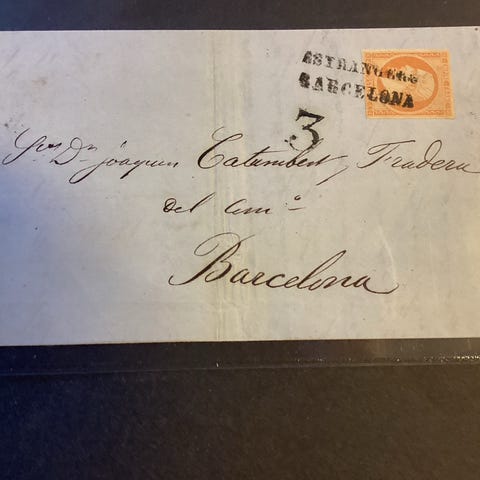 ESTRANGERO
BARCELONA
3
Sor. Dn. Joaquin Catumbert y Fradera
del Como.
Barcelona